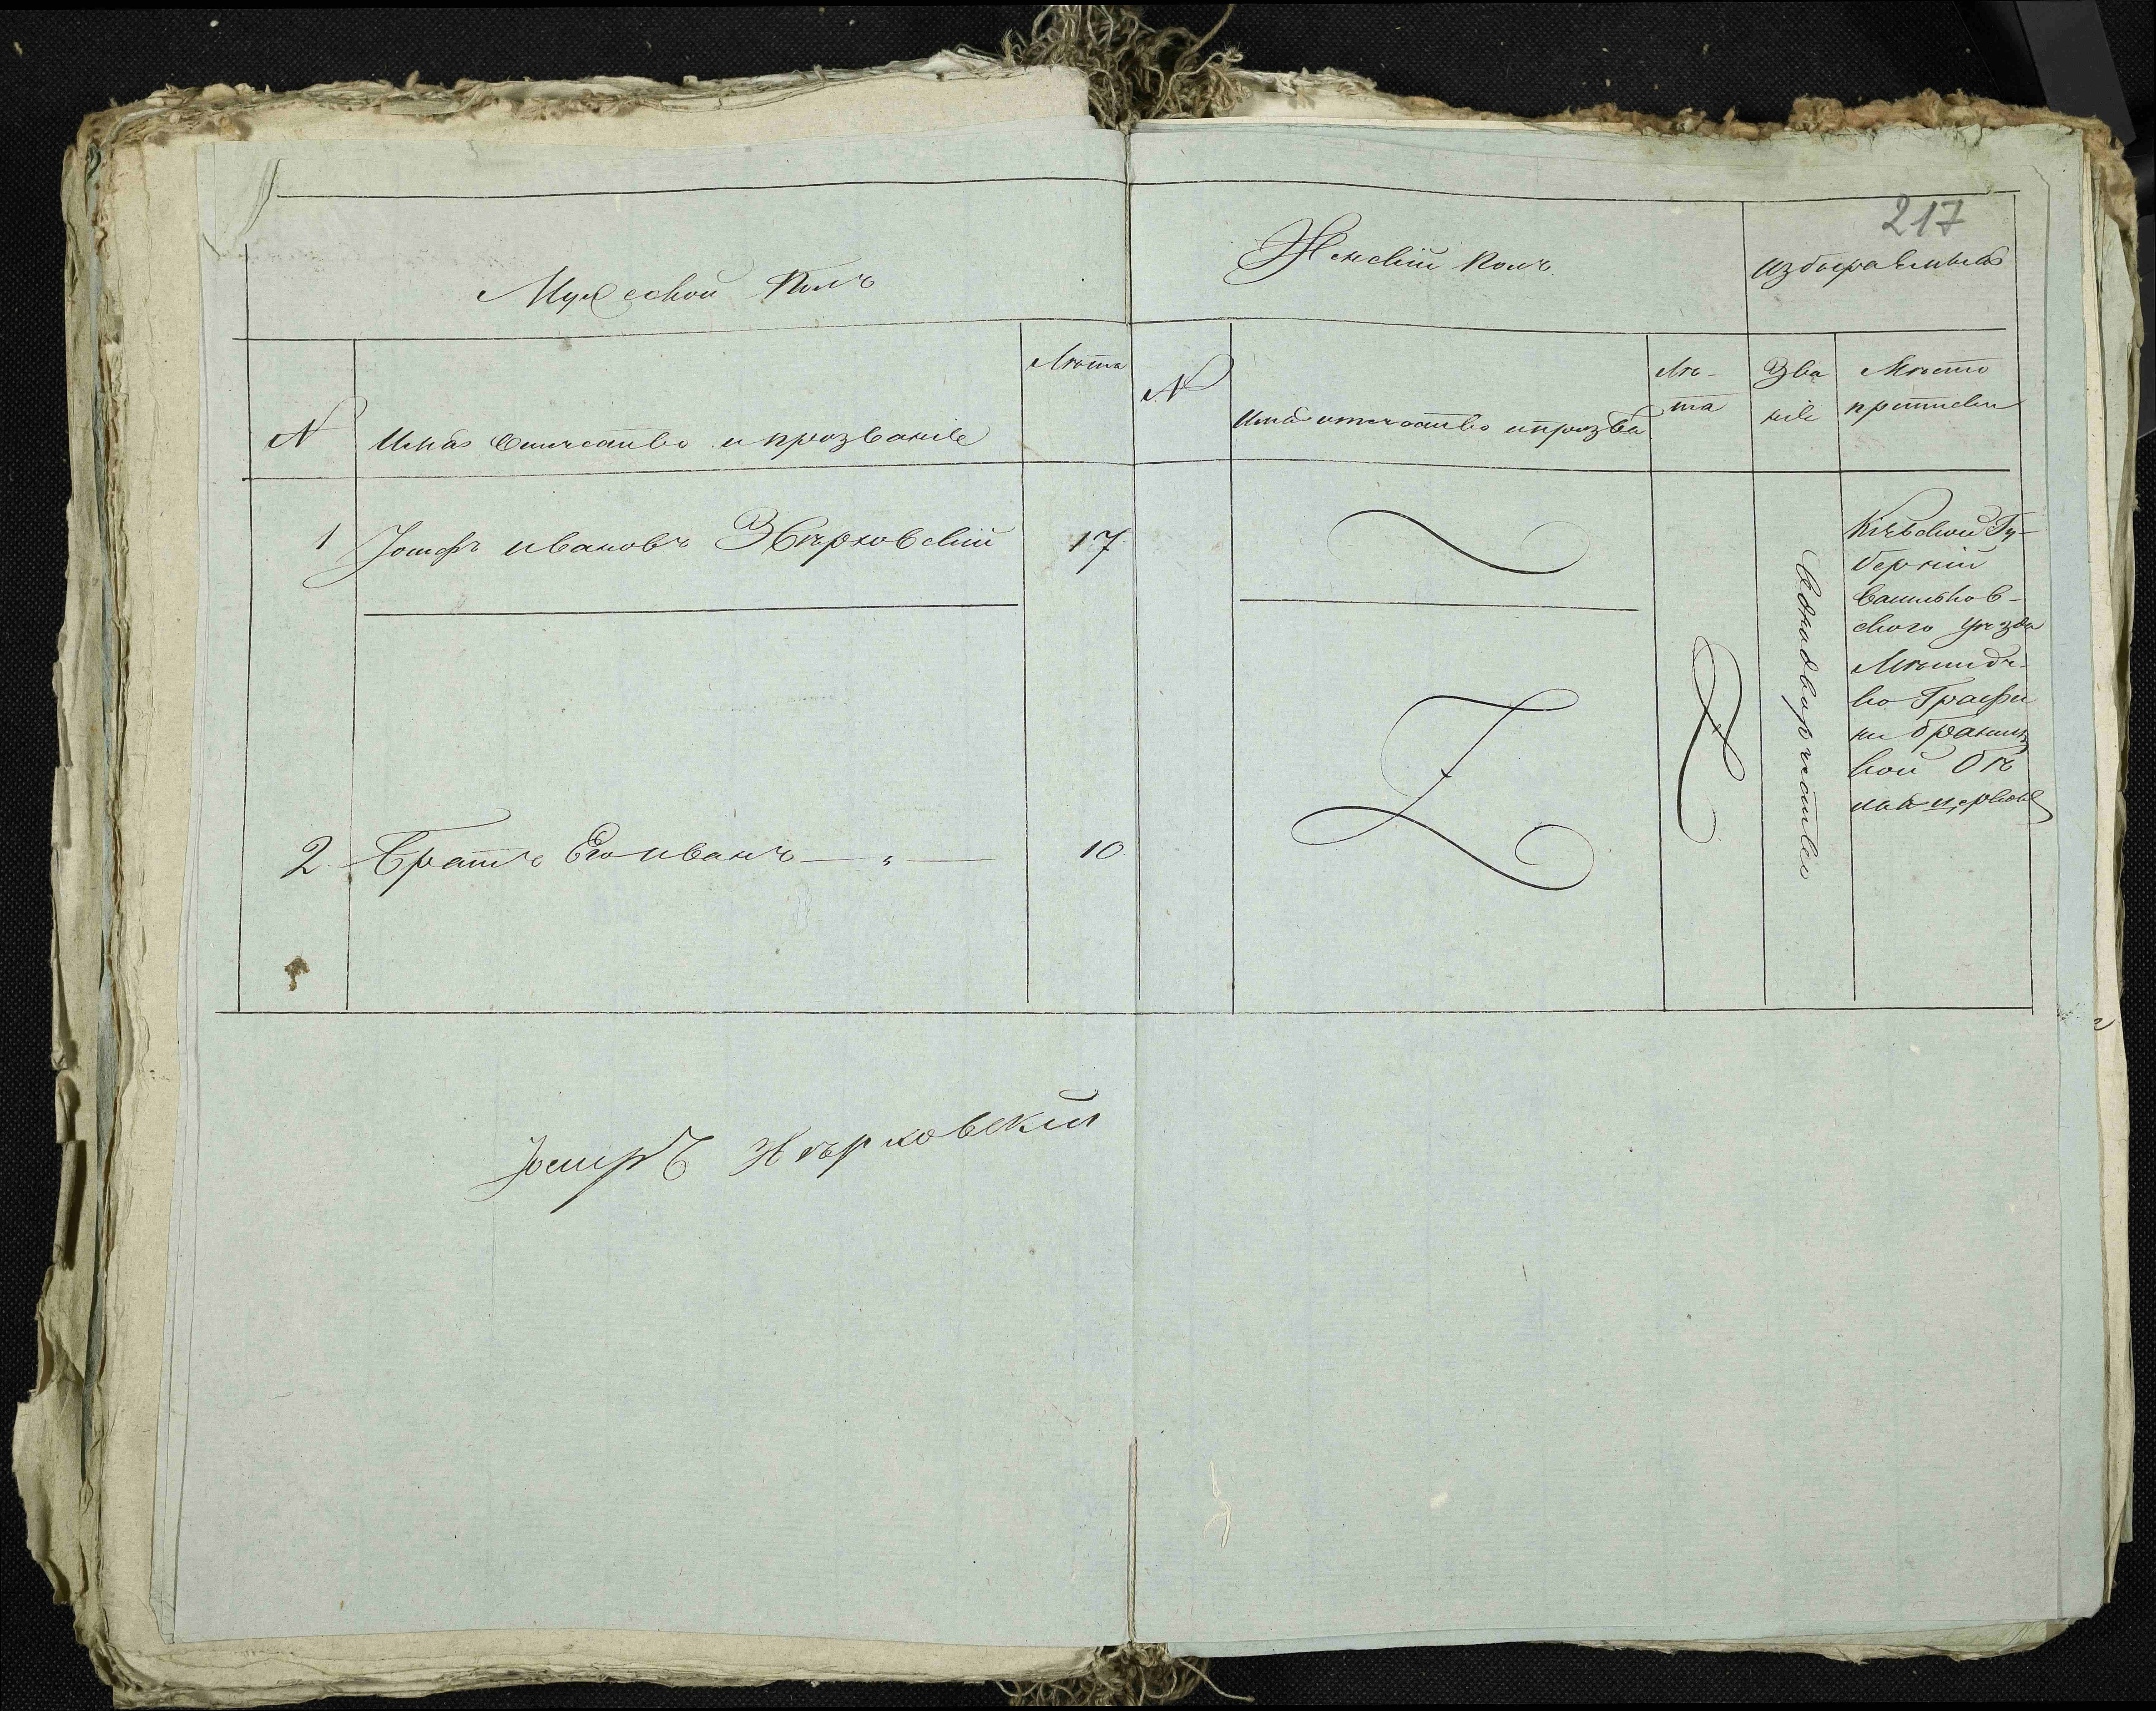 217
Мужеской Полъ
Женскій Полъ
Избираемыя
N
Имя Отчество и прозваніе
Лѣта
N
Имя отчество и прозва
Лѣ-
та
Зва
ніе
Мѣсто
приписки
1 Іосифъ Ивановъ 17
Однодворчество
Кіевской Гу-
берніи
Васильков-
ского уѣзда
во Графи
ни Браниц
кой Бѣ
лая церковь
2 Братъ Его Иванъ — „ — 10
Іосифъ